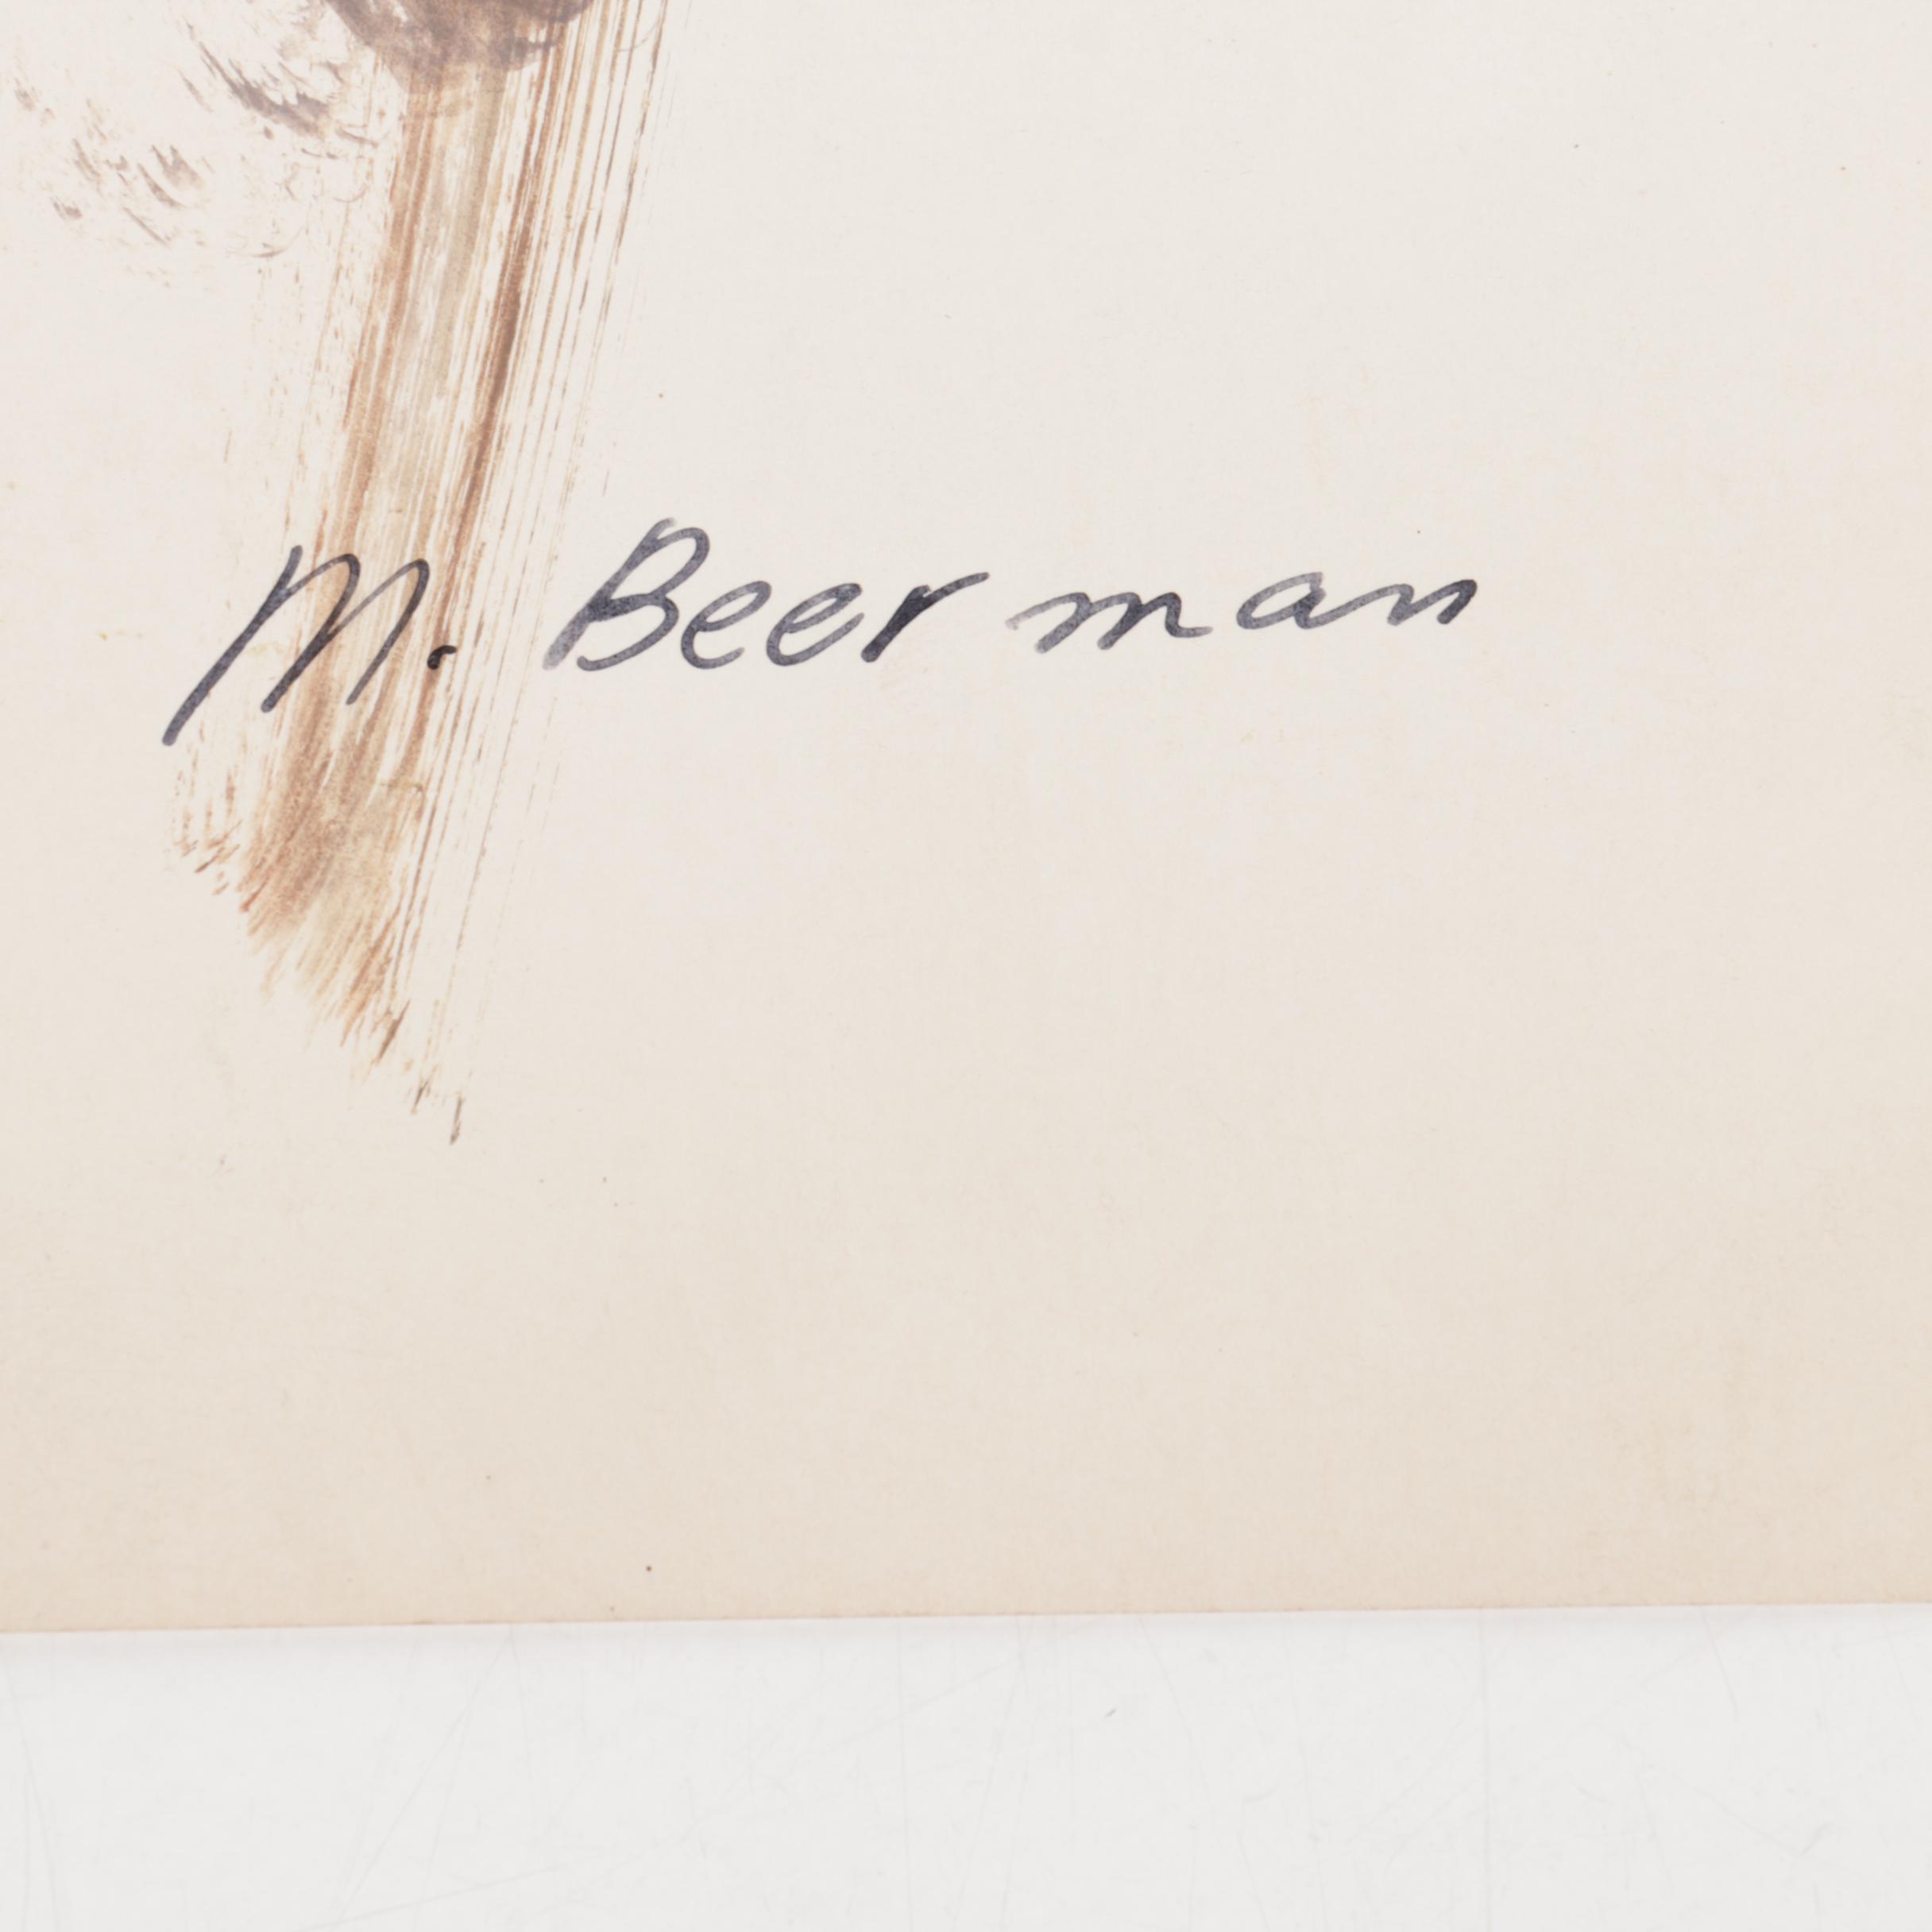 M. Beerman